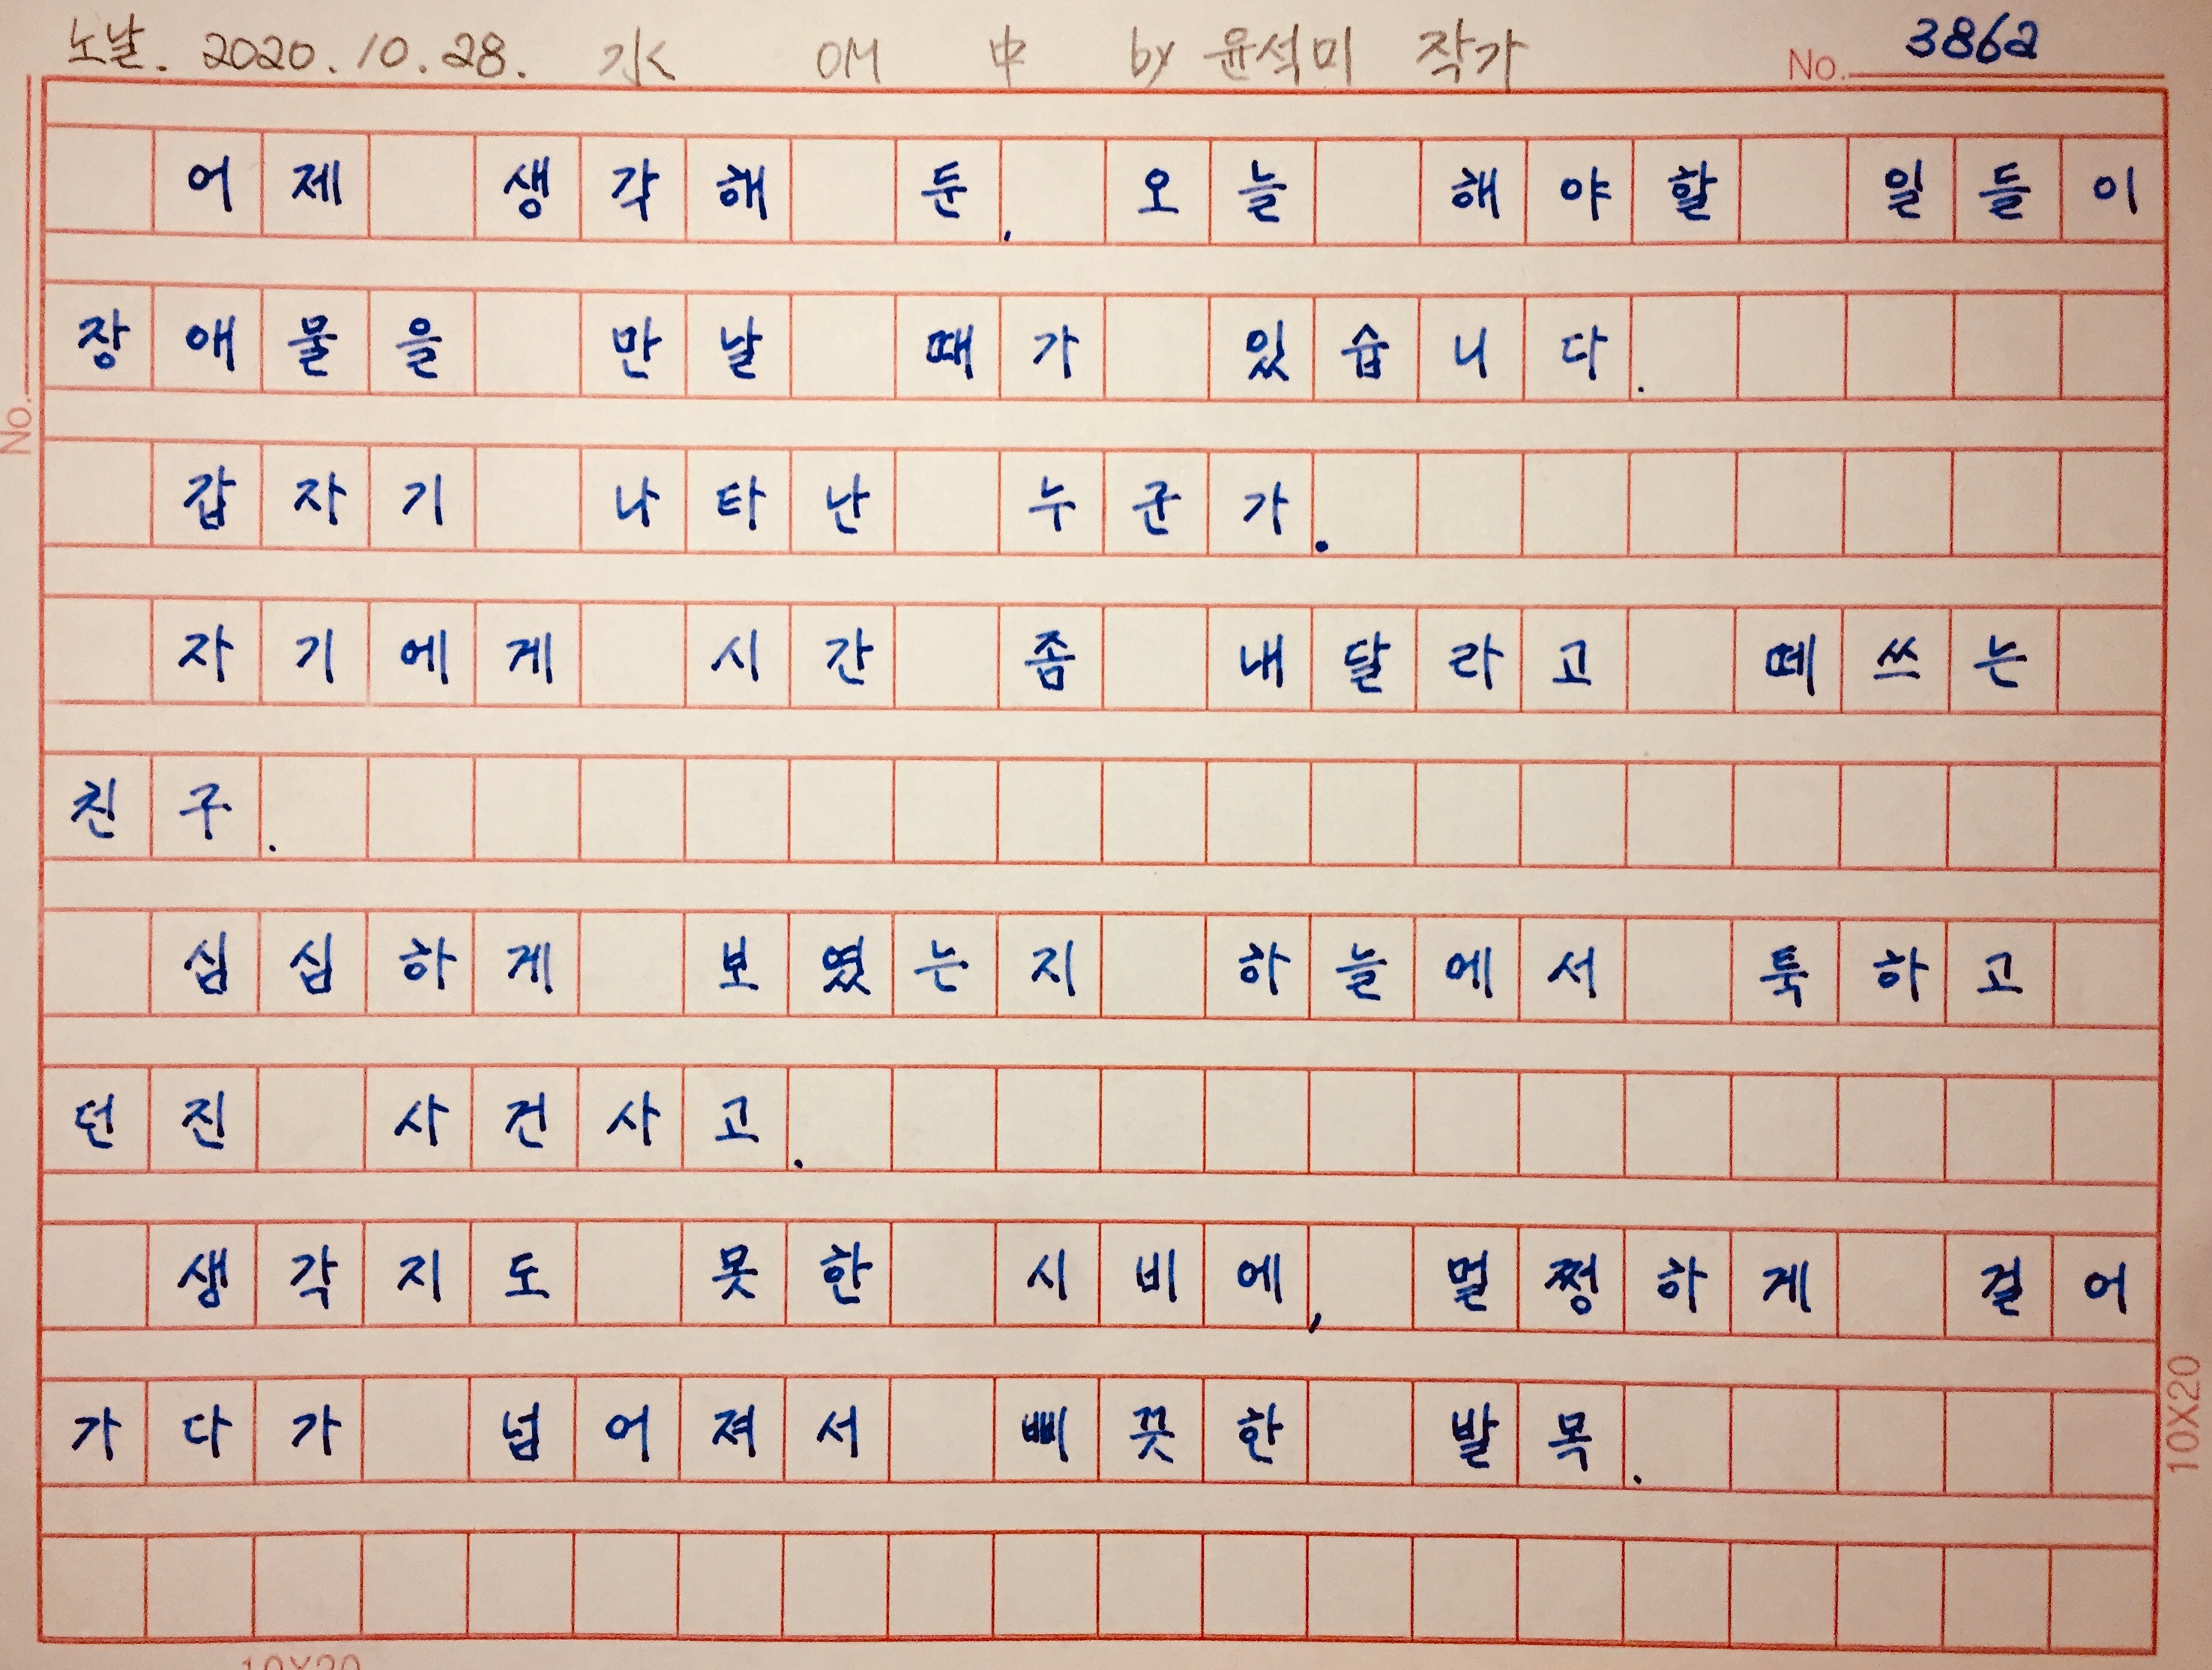 노날. 2020. 10. 28. 水 OM 中 by 윤석미 작가
No. 3862
어제 생각해 둔. 오늘 해야할 일들이
장애물을 만날 때가 있습니다.
No.
갑자기 나타난 누군가.
자기에게 시간 좀 내달라고 떼쓰는
친구.
심심하게 보였는지 하늘에서 툭하고
던진 사건사고.
생각지도 못한 시비에, 멀쩡하게 걸어
가다가 넘어져서 삐끗한 발목.
10X20
10X20